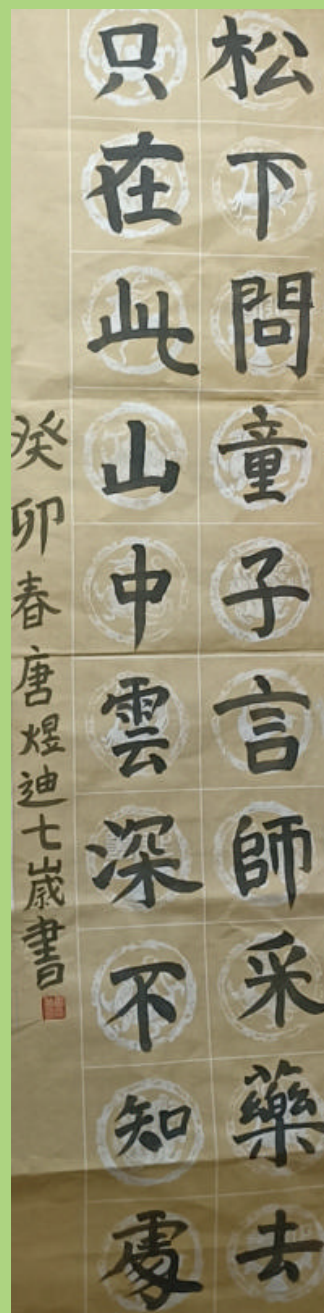 松下問童子言師采藥去
只在此山中雲深不知處
癸卯春唐煜迪七歲書